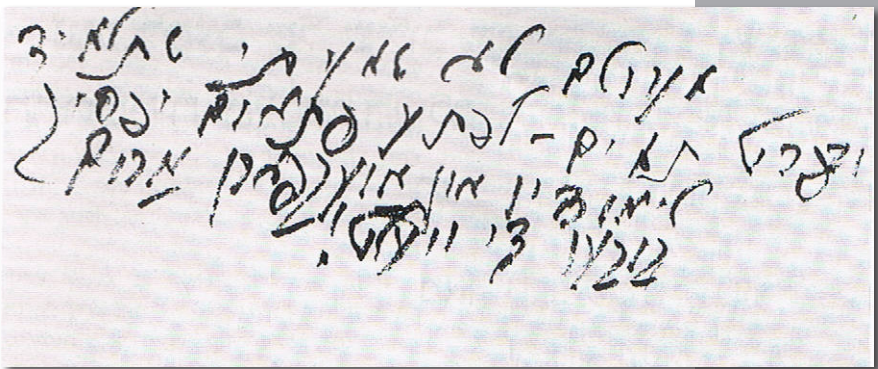 מעולם לא שמעתי שתלמיד
ובפרט תמים - לפתע פתאום יפסיק
לימודיו און אוועקפארן ארום
די וועלט.